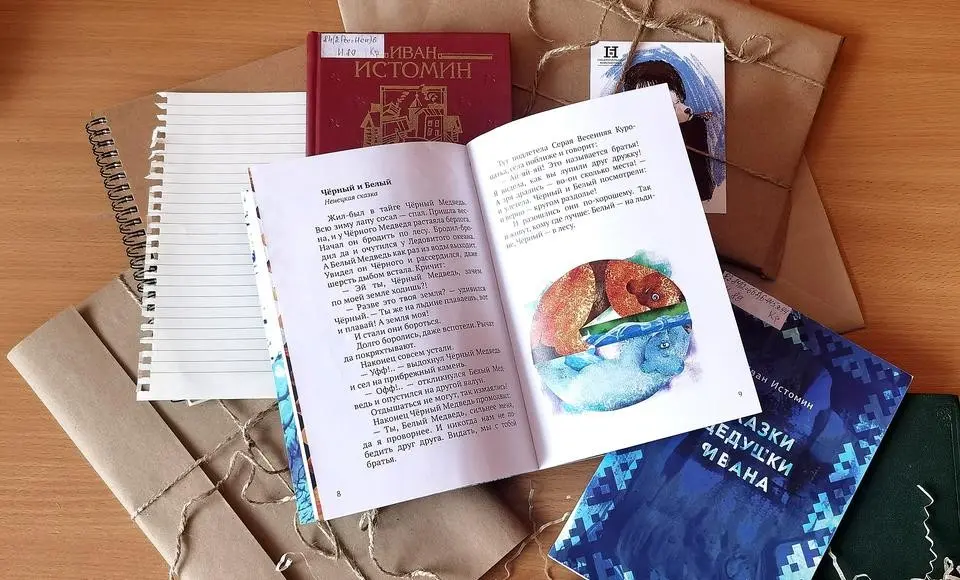 ИВАН
ИСТОМИН
Чёрный и Белый
Ненецкая сказка
Жил-был в тайге Чёрный Медведь.
Всю зиму лапу сосал — спал. Пришла вес-
на, и у Чёрного Медведя растаяла берлога.
Начал он бродить по лесу. Бродил-бро-
дил да и очутился у Ледовитого океана.
А Белый Медведь как раз из воды выходит.
Увидел он Чёрного и рассердился, даже
шерсть дыбом встала. Кричит:
— Эй ты, Чёрный Медведь, зачем
по моей земле ходишь?!
— Разве это твоя земля? — удивился
Чёрный. — Ты же на льдине плаваешь, вот
и плавай! А земля моя!
И стали они бороться.
Долго боролись, даже вспотели. Рычат
да покряхтывают.
Наконец совсем устали.
— Уфф!.. — выдохнул Чёрный Медведь
и сел на прибрежный камень.
— Офф!.. — откликнулся Белый Мед-
ведь и опустился на другой валун.
Отдышаться не могут, так измаялись!
Наконец Чёрный Медведь промолвил:
— Ты, Белый Медведь, сильнее меня,
да я проворнее. И никогда нам не по-
бедить друг друга. Видать, мы с тобой
братья.
8
Тут подлетела Серая Весенняя Куро-
патка, села поближе и говорит:
— Ай-яй-яй! Это называется братья!
Я видела, как вы лупили друг дружку!
А зря дрались — во-он сколько места! —
и улетела. Чёрный и Белый посмотрели:
и верно — кругом раздолье!
И разошлись они по-хорошему. Так
и живут, кому где лучше: Белый — на льди-
не, Чёрный — в лесу.
9
Иван Истомин
СКАЗКИ
ДЕДУШКИ
ИВАНА